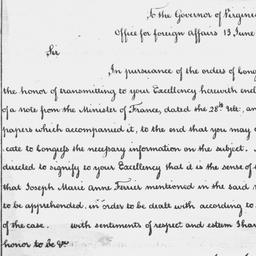 To the Governor of Virginia
Office for foreign Affairs 13 June
Sir
In pursuance of the orders of Cong
the honor of transmitting to your Excellency herewith encl
of a note from the Minister of France, dated the 28th Ult: an
papers which accompanied it, to the end that you may c
cate to Congress the necessary information on the subject.
directed to signify to your Excellency that it is the sense of
that Joseph Marie Anne Ferrier mentioned in the said n
to be apprehended, in order to be dealt with according to
of the case. with sentiments of respect and esteem I hav
honor to be &ca